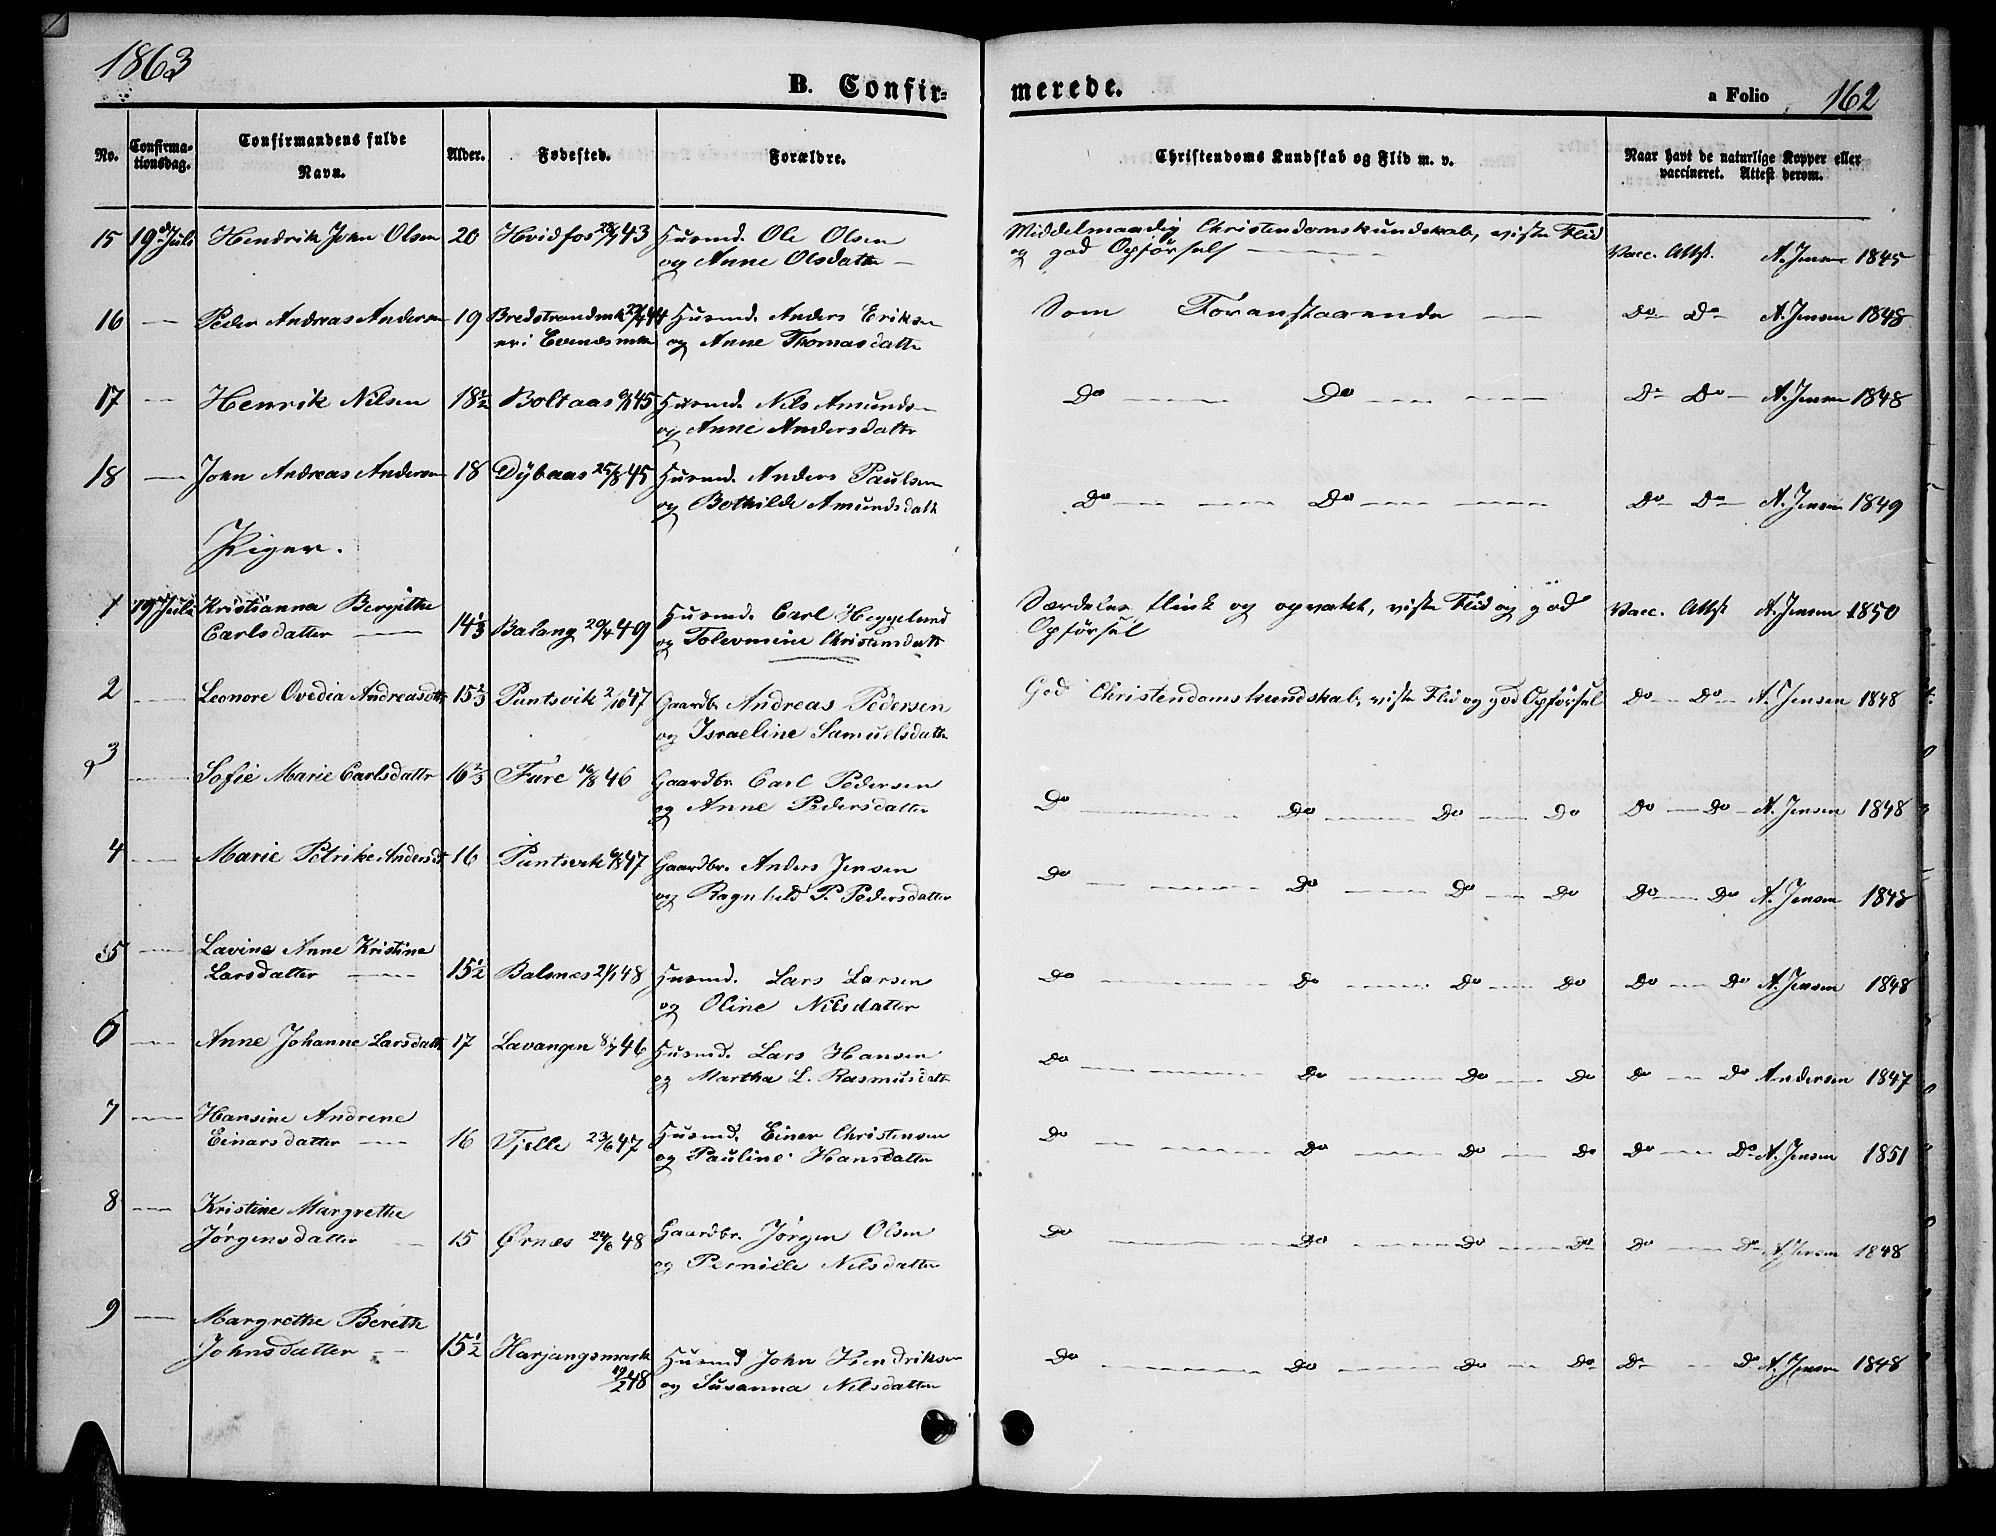 1863
B. Confir-
merede.
a Folio 162
No.
Confirma-
tionsdag.
Confirmandens fulde
Navn.
Alder.
Fødested.
Forældre.
Christendoms Kundskab og Flid m. v.
Naar havt de naturlige Kopper eller
vaccineret. Attest derom.
15 19de Juli Hendrik John Olsen 20 Hvidfos 43 Husmd. Ole Olsen
og Anne Olsdatter
Middelmaadig Christendomskundskab, viste Flid
og god Opførsel
Vacc. Attst. A. Jensen 1845
16 Peder Andreas Andersen 19 44 Husmd. Anders Eriksen
og Anne Thomasdatter
Som Foranstaaende Do Do A. Jensen 1848
17 Henrik Nilsen 18 1/2 Boltaas 45 Husmd. Nils Amundsen
og Anne Andersdatter
Do Do Do Do A. Jensen 1848
18 John Andreas Andersen 18 Dybaas 25/8 45 Husmd. Anders Paulsen
og Bothilde Amundsdatt
Do Do Do Do A. Jensen 1849
Piger.
1 19 Juli Kristianna Bergithe
Carlsdatter 14 1/3 Balang 49 Husmd. Carl Heggelund
og Christensdatt
Særdeles flink og opvakt, viste Flid og god
Opførsel
Vacc. Attst A. Jensen 1850
2 Leonore Ovedia Andreasdtr 15 2/3 Puntsvik 2/10 47 Gaardbr. Andreas Pedersen
og Israeline Samuelsdatter
God Christendomskundskab, viste Flid og god Opførsel Do Do A. Jensen 1848
3 Sofie Marie Carlsdatter 16 2/3 Fure 16/8 46 Gaardbr. Carl Pedersen
og Anne Pedersdatter
Do Do Do Do Do Do A. Jensen 1848
4 Marie Petrike Andersdt 16 Puntsvik 47 Gaardbr. Anders Jensen
og Ragnhild P. Pedersdatter
Do Do Do Do Do Do A. Jensen 1848
5 Lavina Anne Kristine
Larsdatter 15 1/2 Balsnes 2/1 48 Husmd. Lars Larsen
og Oline Nilsdatter
Do Do Do Do Do Do A. Jensen 1848
6 Anne Johanne Larsdatt 17 Lavangen 46 Husmd. Lars Hansen
og Martha L. Rasmusdatt
Do Do Do Do Do Do Andersen 1847
7 Hansine Andrene
Einarsdatter 16 Tjelle 23/6 47 Husmd. Einer Christensen
og Pauline Hansdatter
Do Do Do Do Do Do A. Jensen 1851
8 Kristine Margrethe
Jørgensdatter 15 Ørnes 24/6 48 Gaardbr. Jørgen Olsen
og Pernille Nilsdatter
Do Do Do Do Do Do A. Jensen 1848
9 Margrethe Berethe
Johnsdatter 15 1/2 Harjangsmark Husmd John Hendriksen
48 og Susanna Nilsdatter
Do Do Do Do Do Do A. Jensen 1848